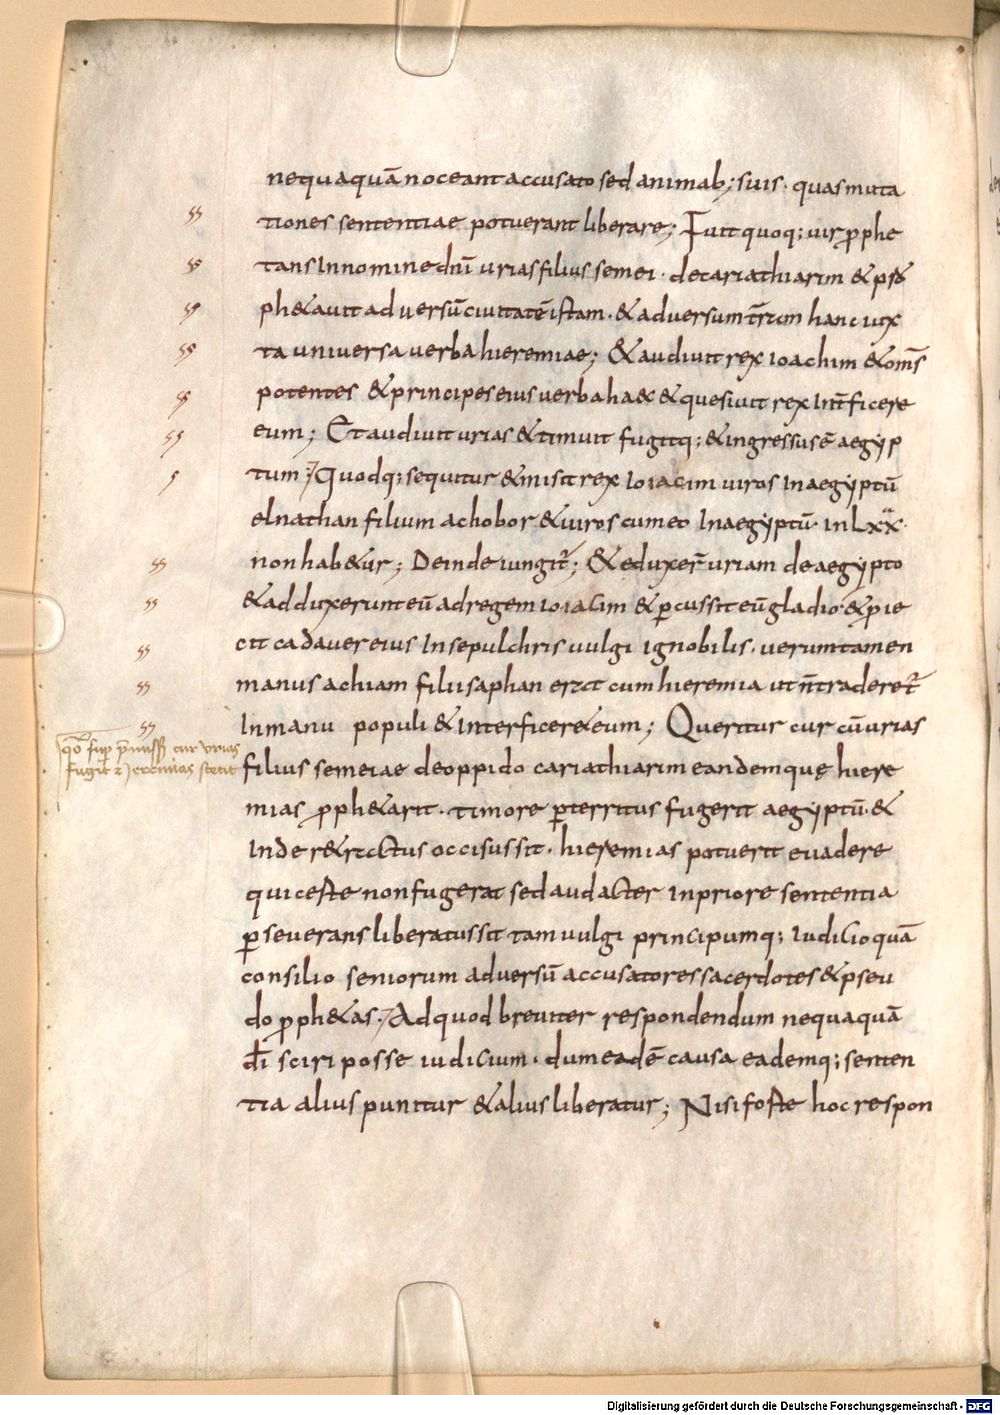 nequaquā noceant accusato sed animab; suis · quas muta
tiones sententiae potuerant liberare; Fuit quoq; vir pphe
tans In nomine dn̄i urias filius semei · de cariathiarim &
ph&auit adversū ciuitatē istam · & adversum hanc
ta universa verba hieremiae; & audiuit rex ioachim & om̄s
potentes & principes eius verba haec & quesiuit rex Int̄ficere
eum; Et audiuit urias & timuit fugitq; & ingressus ē aegyp
tum; Quodq; sequitur & misit rex Ioiacim viros In aegyptū
elnathan filium achobor & viros cum eo In aegyptū · in Lxx ·
non hab&ur; Deinde iungit̄; & eduxer̄ uriam de aegypto
& adduxerunt eū ad regem ioiacim & pcussit eū gladio · & pie
cit cadaver eius In sepulchris vulgi ignobilis · verumtamen
manus achiam filii saphan erat cum hieremia ut n̄ traderet̄
In manu populi & Interficer& eum; Queritur cur cū urias
filius semeiae de oppido cariathiarim eandem que hiere
mias pph&arit · timore pterritus fugerit aegyptū · &
Inde r&ractus occisus sit · hieremias potuerit evadere
qui certe non fugerat sed audacter In priore sententia
pseverans liberatus sit tam vulgi principumq; iudicio quā
consilio seniorum adversū accusatores sacerdotes & pseu
do pph&as · Ad quod breviter respondendum nequaquā
dī sciri posse iudicium · dum eadē causa eademq; senten
tia alius punitur & alius liberatur; Nisi forte hoc respon
cur vrias
fugit Jeremias stetit
Digitalisierung gefördert durch die Deutsche Forschungsgemeinschaft - DFG